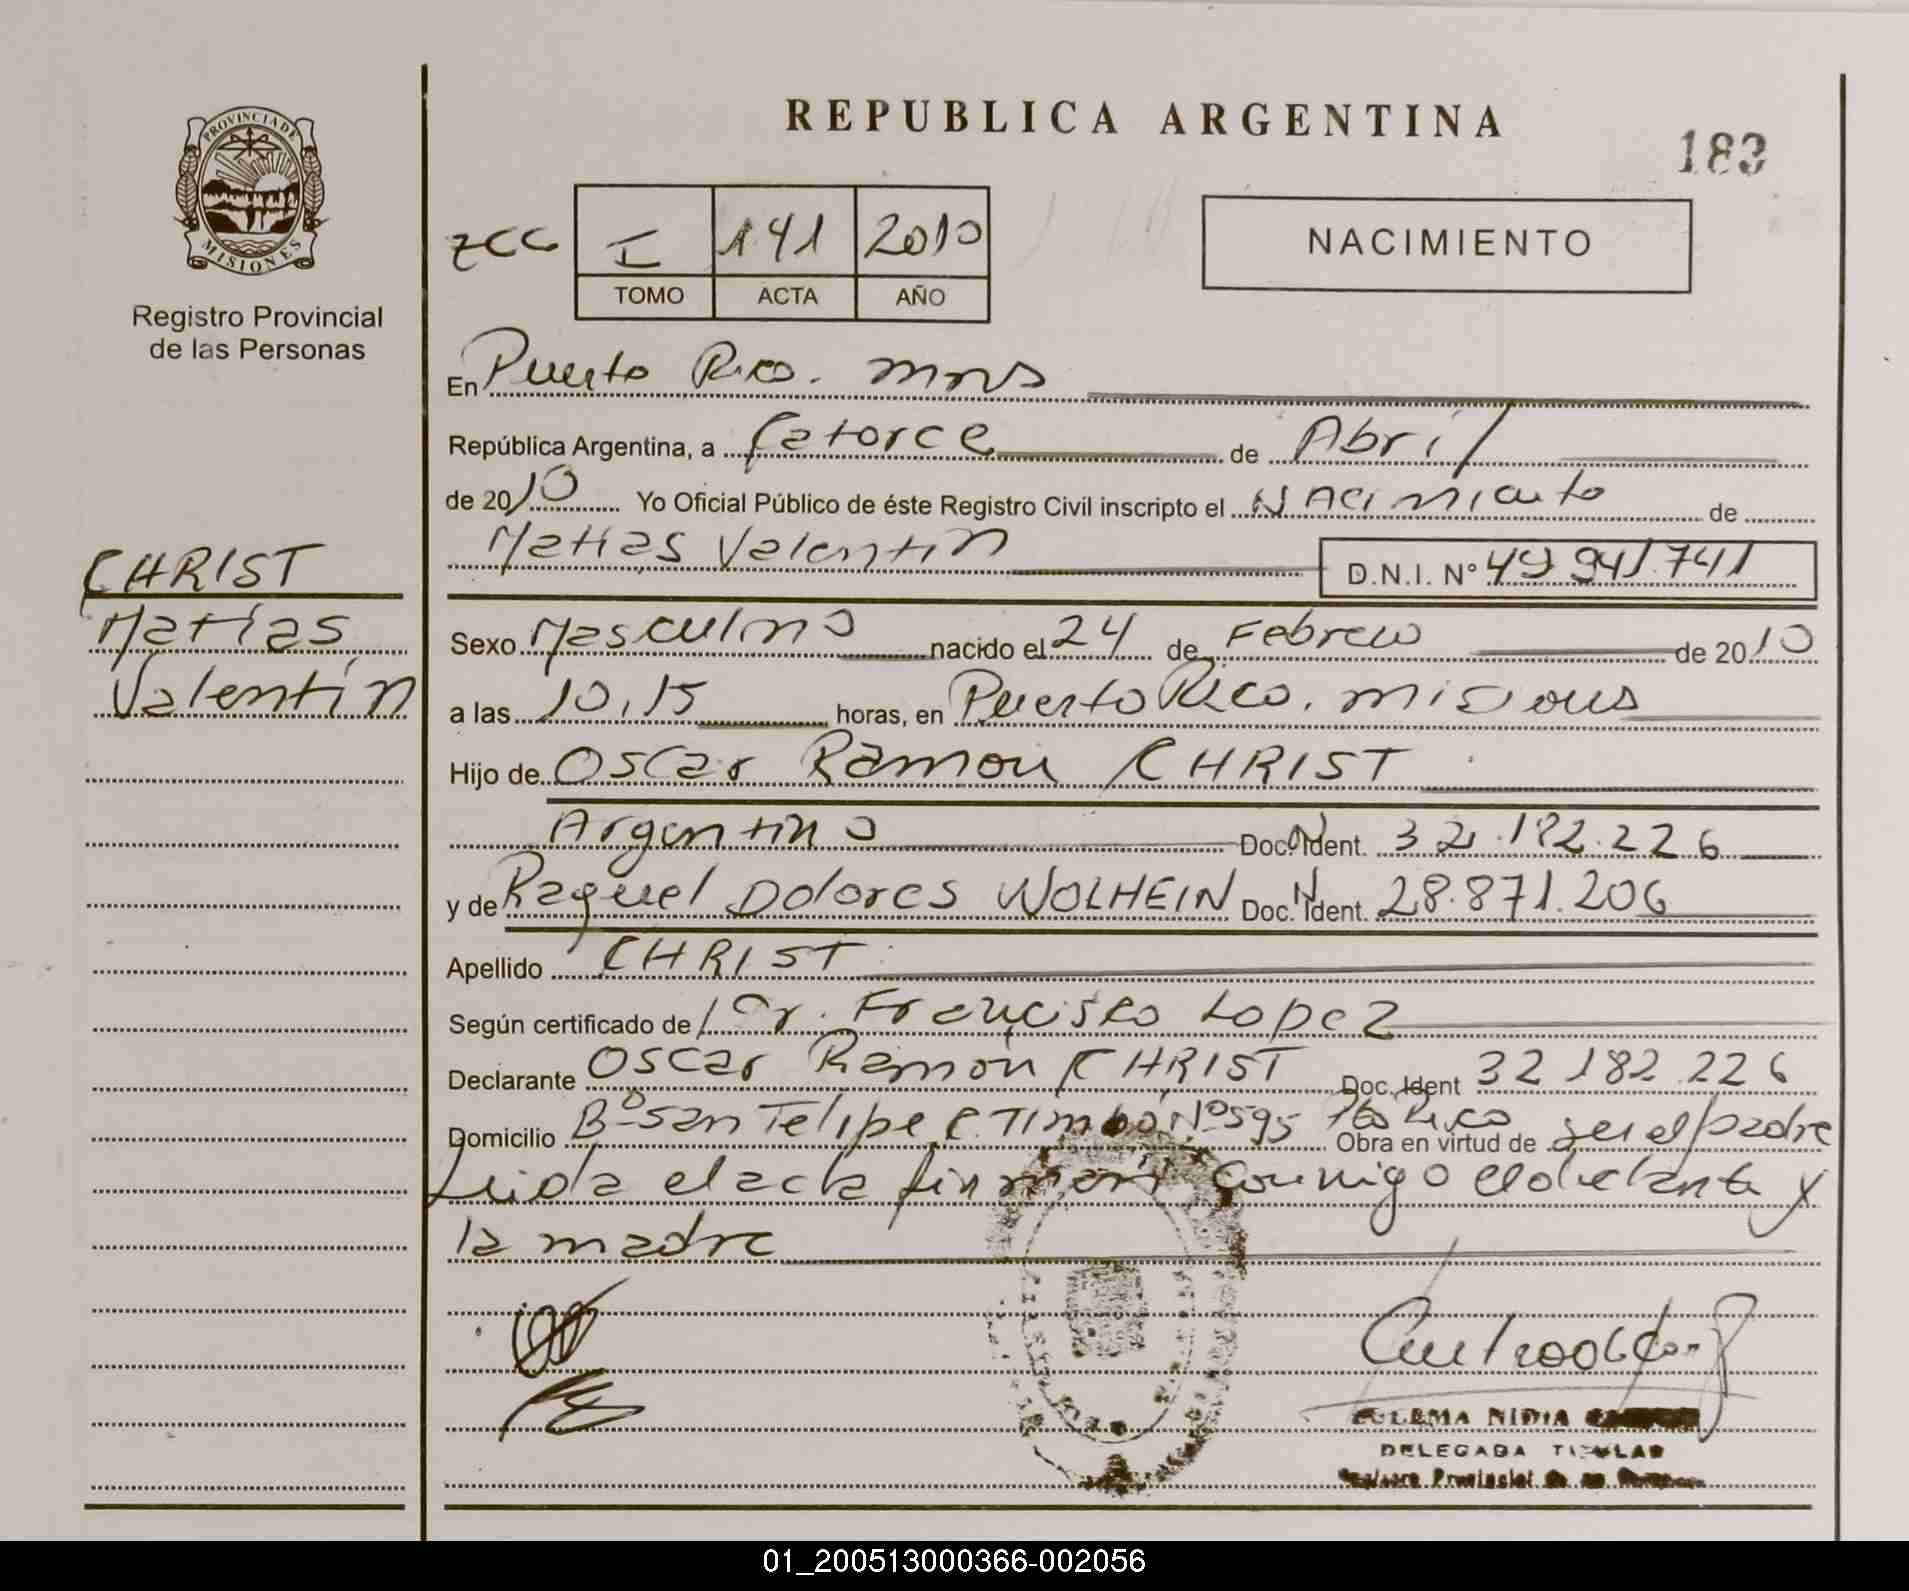 PROVINCIA DE
MISIONES
Registro Provincial
de las Personas
CHRIST
Matías
Valentín
REPUBLICA ARGENTINA
183
I 141 2010
TOMO ACTA AÑO
NACIMIENTO
En Puerto Rico. mns
República Argentina, a Catorce de Abril
de 2010 Yo Oficial Público de éste Registro Civil inscripto el Nacimiento de
Matias Valentin D.N.I. N° 49 941.741
Sexo Masculino nacido el 24 de Febrero de 2010
a las 10,15 horas, en Puerto Rico. misiones
Hijo de Oscar Ramon CHRIST
Argentino Doc. N Ident. 32.182.226
y de Raquel Dolores WOLHEIN Doc. N Ident. 28.871.206
Apellido CHRIST
Según certificado de Dr. Francisco Lopez
Declarante Oscar Ramon CHRIST Doc. Ident 32 182 226
Domicilio Bº San Felipe C. Timbó Nº 595 Pto Rico Obra en virtud de ser el padre
Leida el acta firman conmigo el declarante y
la madre
ZULEMA NIDIA
DELEGADA TITULAR
01_200513000366-002056